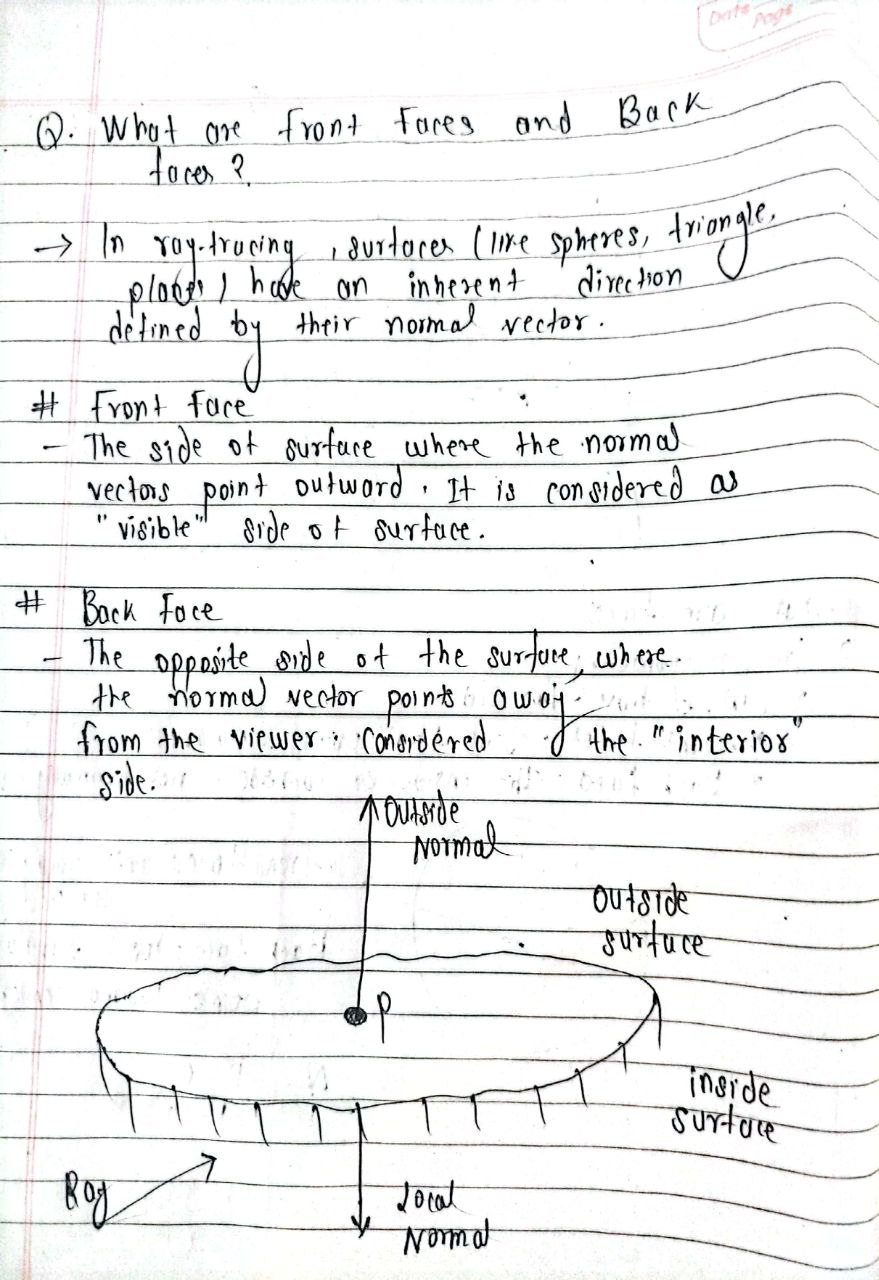 Date
Page
Q. What are front faces and Back
faces ?
→ In ray-tracing , surfaces (like spheres, triangle,
planes) have an inherent direction
defined by their normal vector.
# Front face
- The side of surface where the normal
vectors point outward. It is considered as
"visible" side of surface.
# Back face
- The opposite side of the surface, where
the normal vector points away
from the viewer. Considered the "interior"
side.
Outside
Normal
Outside
surface
P
inside
surface
Ray
Local
Normal